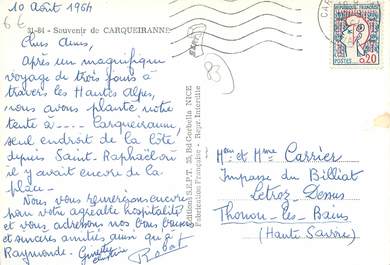 10 Août 1964
6€
31-84 - Souvenir de CARQUEIRANNE
Chers Amis,
Après un magnifique
voyage de trois jours à
travers les Hautes Alpes,
nous avons planté notre
tente à .... Carqueiranne,
seul endroit de la côte
depuis Saint-Raphaël où
il y avait encore de la
place -
Nous vous remercions encore
pour votre agréable hospitalité
et vous adressons nos bons baisers
et sincères amitiés ainsi qu'à
Raymonde.
Robert
83
Editions S.E.P.T. 35, Bd Gorbella NICE
Fabrication Française - Repr. Interdite
REPUBLIQUE FRANCAISE
POSTES 0,20
Mr et Mme Carrier
Impasse du Billiat
Letroz-Dessus
Thonon-les-Bains
(Haute Savoie)